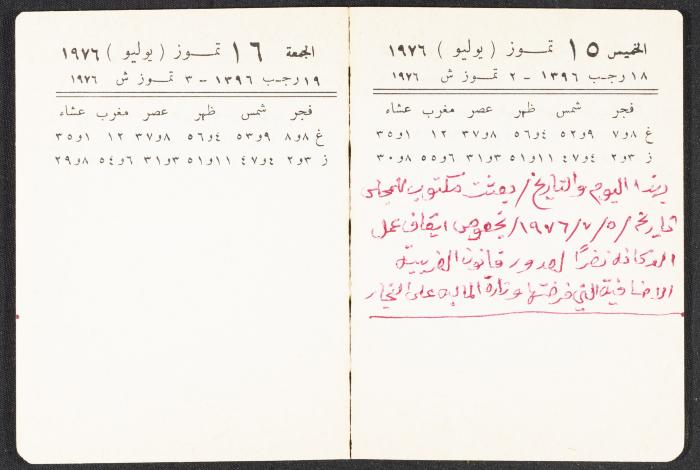 الخميس ١٥ تمــوز ( يوليو ) ١٩٧٦
١٨ رجـب ١٣٩٦ - ٢ تمـوز ش ١٩٧٦
فجر شمس ظهر عصر مغرب عشاء
غ ٨و٧ ٩و٥٢ ٤و٥٦ ٨و٣٧ ١٢ ١و٣٥
ز ٣و٢ ٤و٤٧ ١١و٥١ ٣و٣١ ٦و٥٥ ٨و٣٠
بهذا اليوم والتاريخ / بعثت مكتوب للمجلس
تاريخ / ١٩٧٦/٧/٥ / بخصوص ايقاف عمل
نظرًا لصدور قانون الضريبة
الاضافية التي فرضتها وزارة المالية على التجار
الجمعة ١٦ تمــوز ( يوليو ) ١٩٧٦
١٩ رجـب ١٣٩٦ - ٣ تمـوز ش ١٩٧٦
فجر شمس ظهر عصر مغرب عشاء
غ ٨و٨ ٩و٥٣ ٤و٥٦ ٨و٣٧ ١٢ ١و٣٥
ز ٣و٢ ٤و٤٧ ١١و٥١ ٣و٣١ ٦و٥٤ ٨و٢٩